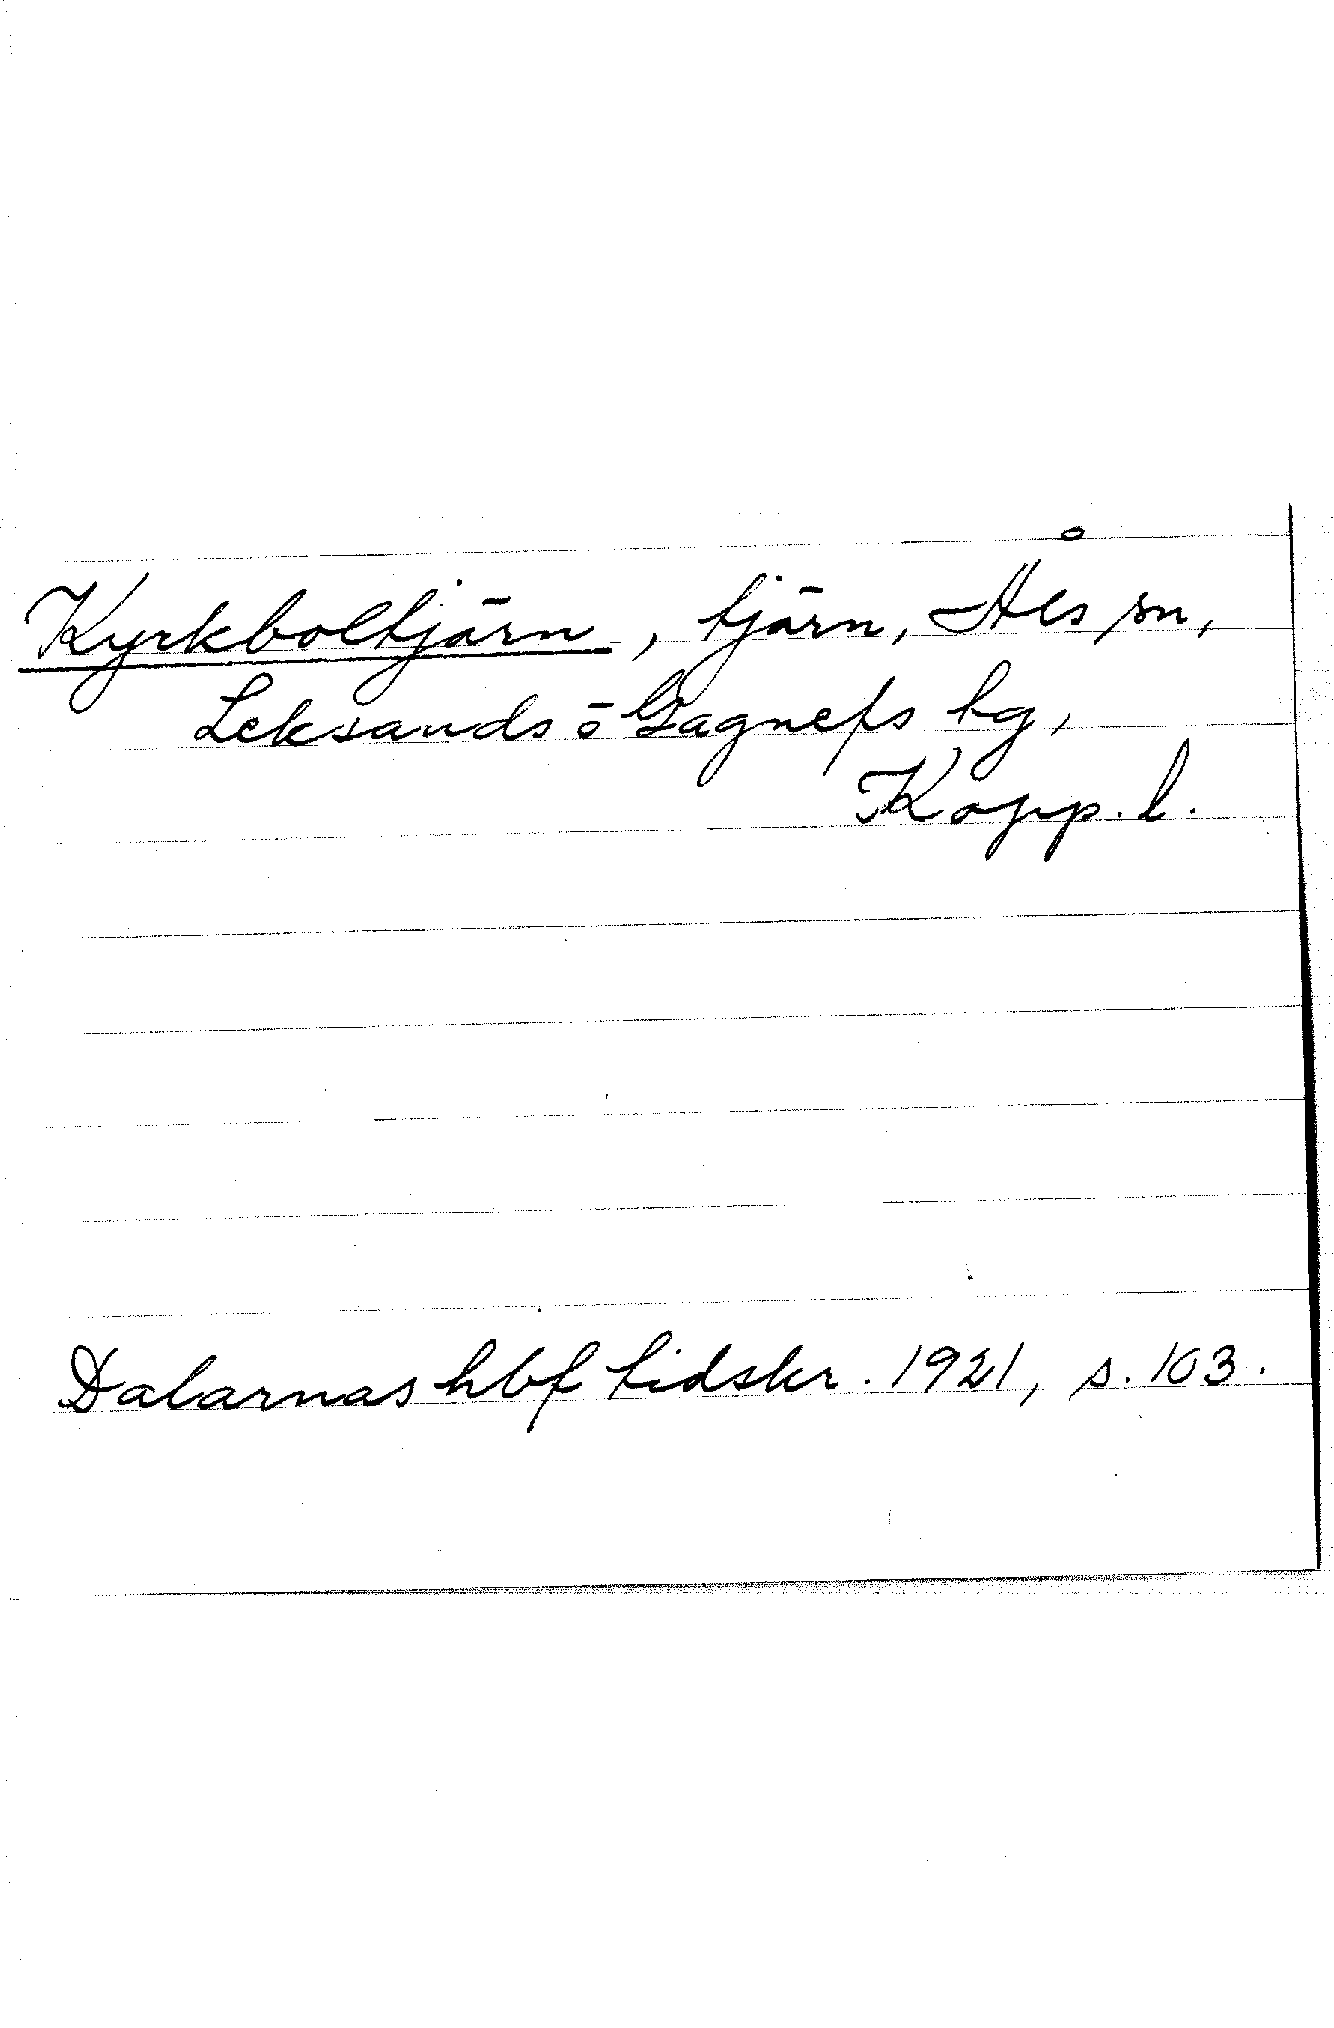 Kyrkboltjärn, tjärn, Åls sn,
Leksands o Gagnefs bg,
Kopp. l.
Dalarnas hbf tidskr. 1921, s. 103.